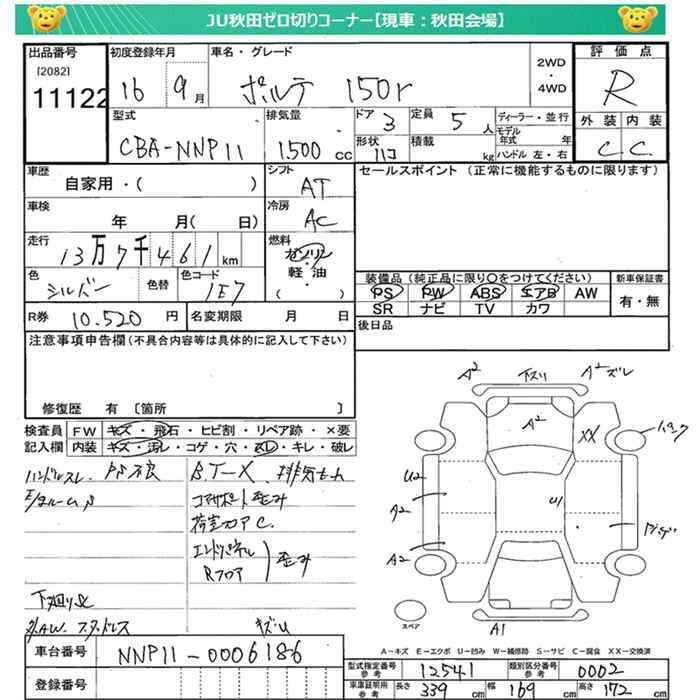 JU秋田ゼロ切りコーナー【現車：秋田会場】
出品番号
[2082]
11122
初度登録年月
16 9月
車名・グレード
ポルテ 150r
2WD
・
4WD
評価点
R
外装 内装
C C
型式
CBA-NNP11
排気量
1500 cc
ドア 3
定員 5 人
形状
積載 kg
ディーラー・並行
モデル年式 年
ハンドル 左・右
車歴
自家用・( )
シフト
AT
セールスポイント (正常に機能するものに限ります)
車検
年 月( 日)
冷房
AC
走行
13万7千461km
燃料
ガソリン
・
軽油
( )
色
シルバー
色替
色コード
1E7
装備品 (純正品に限り○をつけてください)
PS PW ABS エアB AW
SR ナビ TV カワ
新車保証書
有・無
R券 10.520 円
名変期限 月 日
後日品
注意事項申告欄(不具合内容等は具体的に記入して下さい)
修復歴 有 [箇所 ]
検査員記入欄
FW キズ・飛石・ヒビ割・リペア跡・×要
内装 キズ・汚レ・コゲ・穴・スレ・キレ・破レ
ハンドルスレ
コアサポート歪み
荷室フロア C.
エンドパネル
Rフロア
歪み
下廻りサビ
スタッドレス
A2 下スリ A2ズレ
A2
XX
U2
A2
U1
A2
A1
スペア
A－キズ E－エクボ U－凹み W－補修跡 S－サビ C－腐食 XX－交換済
車台番号
NNP11-0006186
登録番号
型式指定番号 参考 12541
類別区分番号 参考 0002
車庫証明用 参考 長さ 339 cm 幅 169 cm 高さ 172 cm